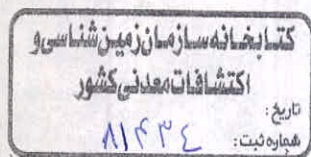 کتابخانه سازمان زمین شناسی و
اکتشافات معدنی کشور
تاریخ:
شماره ثبت: ۸۱۴۳۴